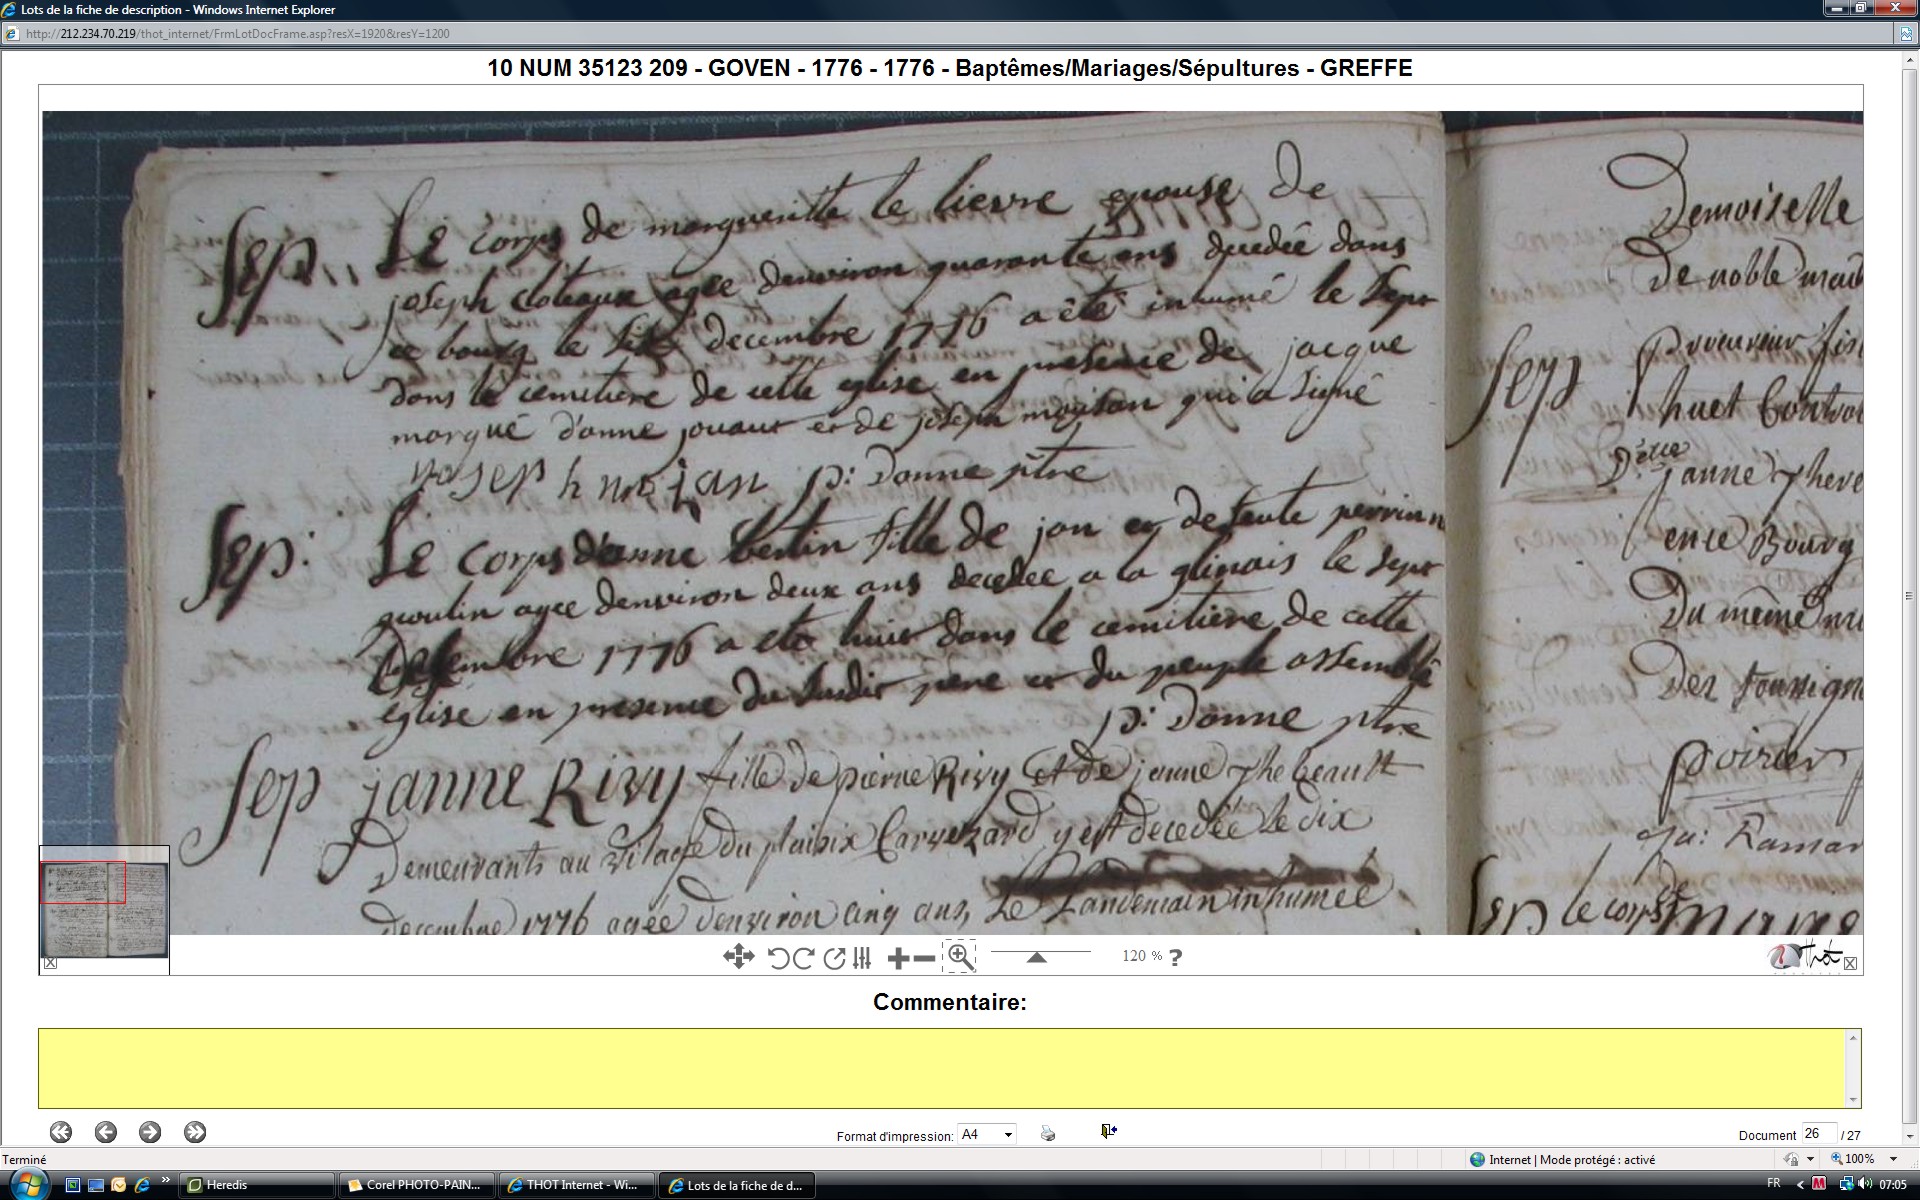 Lots de la fiche de description - Windows Internet Explorer
http://212.234.70.219/thot_internet/FrmLotDocFrame.asp?resX=1920&resY=1200
10 NUM 35123 209 - GOVEN - 1776 - 1776 - Baptêmes/Mariages/Sépultures - GREFFE
Sep.. Le corps de margueritte le lievre epouse de
joseph cloteaux agee denviron quarante ans decedée dans
ce bourg le six decembre 1776 a été inhumé le sept
dans le cemitiere de cette eglise en presence de jacque
marqué d'anne jouaut et de joseph mojson qui a signé
joseph mojan p: Donne ptre
Sep: Le corps d'anne bertin fille de jan et de feute perrinn
agee denviron deux ans decedee a la glinais le sept
decembre 1776 a eto huit dans le cemitiere de cette
eglise en presence du susdit pere et du peuple assemblé
p: Donne ptre
Sep janne Rivy fille de pierre Rivy Et de janne thebeault
Demeurants au vilage du plaisix y est decedée Le dix
decembre 1776 agée d'environ cinq ans, Le Landemain inhumée
Demoiselle
de noble
Sep procureur
huet
janne
en ce Bourg
Du même
Des soussigne
poirier
Sep le corps de
120 % ?
Thot
Commentaire:
Format d'impression: A4
Document 26 / 27
Terminé
Internet | Mode protégé : activé
100%
Heredis
Corel PHOTO-PAIN...
THOT Internet - Wi...
Lots de la fiche de d...
FR
07:05